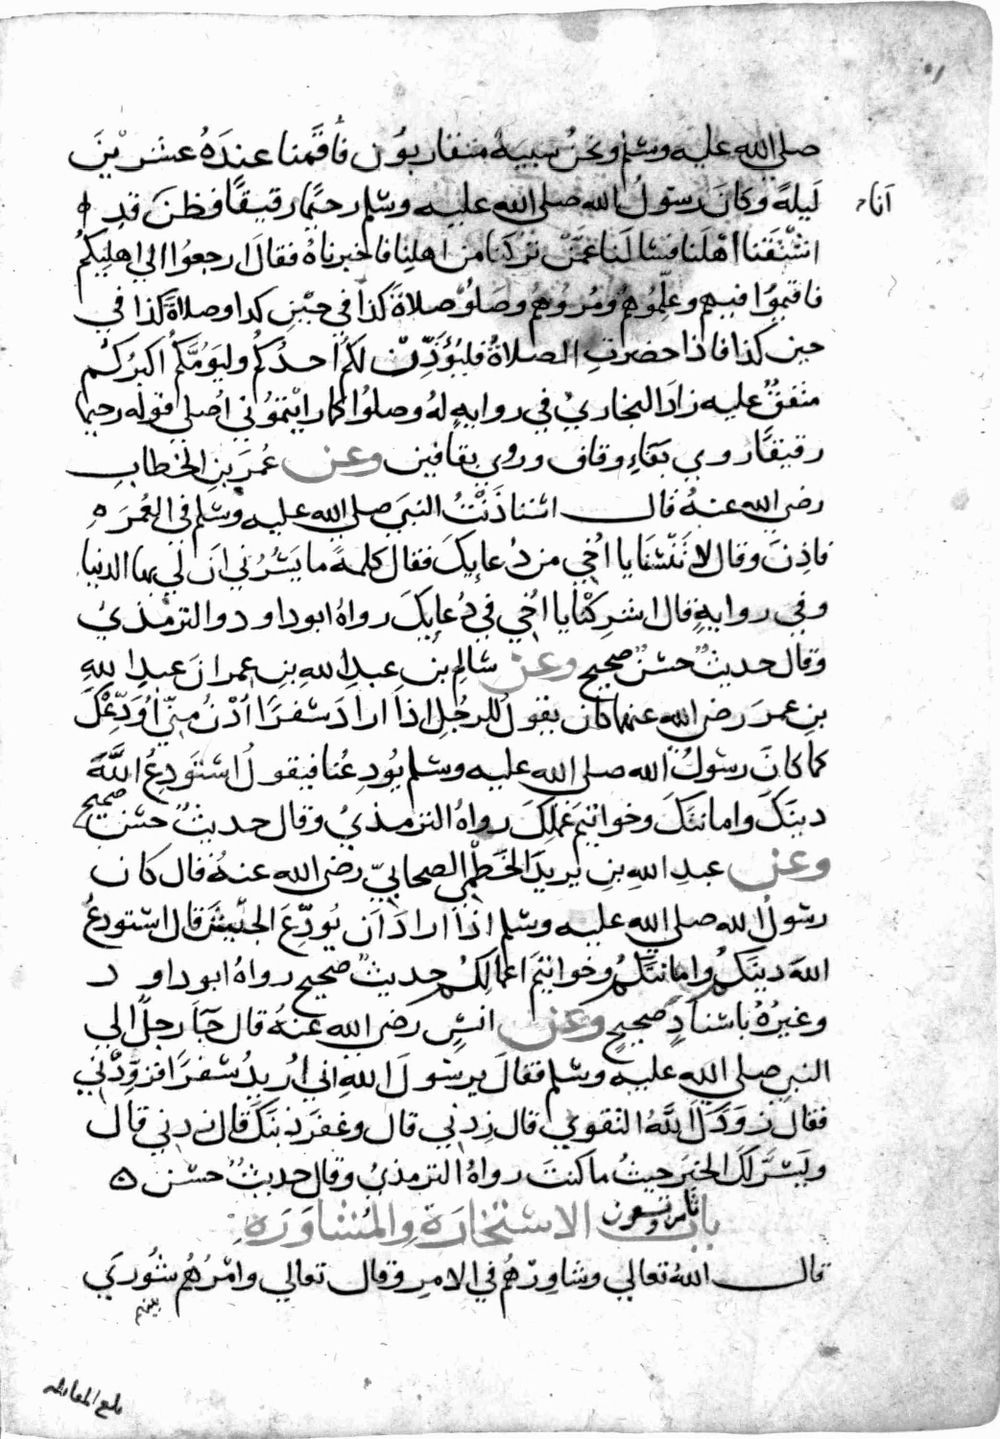 صلي الله عليه وسلم ونحن شبيبة متقاربون فأقمنا عنده عشرين
ليلةً وكان رسول الله صلي الله عليه وسلم رحيمًا رقيقًا فظن قد
انا
اشتقنا اهلنا فسالنا عمن تركنا من اهلنا فاخبرناه فقال ارجعوا الي اهليكم
فاقيموا فيهم وعلموهم ومروهم وصلوا صلاة كذا في حين كذا وصلاة كذا في
حين كذا فاذا حضرت الصلاة فليؤذن لكم احدكم وليؤمكم اكبركم
متفق عليه زاد البخاري في رواية له وصلوا كما رايتموني اصلي قوله رحيما
رقيقًا روي بفاء وقاف وروي بقافين وعن عمر بن الخطاب
رضي الله عنه قال استاذنت النبي صلي الله عليه وسلم في العمرة
فاذن وقال لا تنسنا يا اخي من دعايك فقال كلمة ما يسرني ان لي بها الدنيا
وفي رواية قال اشركنا يا اخي في دعايك رواه ابو داود والترمذي
وقال حديث حسن صحيح وعن سالم بن عبد الله بن عمر ان عبد الله
بن عمر رضي الله عنهما كان يقول للرجل اذا اراد سفرًا ادن مني اودعك
كما كان رسول الله صلي الله عليه وسلم يودعنا فيقول استودع الله
دينك وامانتك وخواتيم عملك رواه الترمذي وقال حديث حسن صحيح
وعن عبد الله بن يزيد الخطمي الصحابي رضي الله عنه قال كان
رسول الله صلي الله عليه وسلم اذا اراد ان يودع الجيش قال استودع
الله دينكم وامانتكم وخواتيم اعمالكم حديث صحيح رواه ابو داود
وغيره باسناد صحيح وعن انس رضي الله عنه قال جا رجل الي
النبي صلي الله عليه وسلم فقال يرسول الله اني اريد سفرا فزودني
فقال زودك الله التقوي قال زدني قال وغفر ذنبك قال زدني قال
ويسر لك الخير حيث ما كنت رواه الترمذي وقال حديث حسن ه
باب الاستخارة والمشاورة
ثامن وتسعون
قال الله تعالي وشاورهم في الامر وقال تعالي وامرهم شوري
بينهم
بلغ المقابله